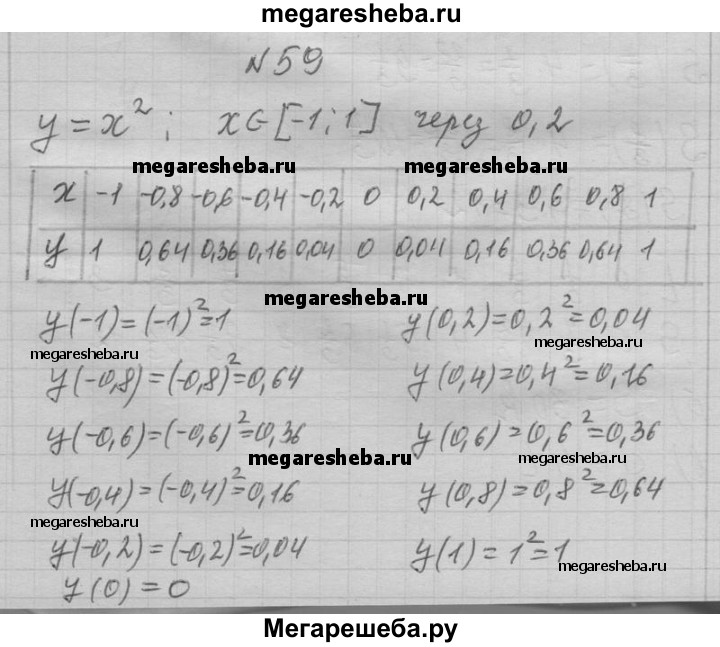 megaresheba.ru
N59
y = x²; x∈[-1;1] через 0,2
megaresheba.ru megaresheba.ru
x -1 -0,8 -0,6 -0,4 -0,2 0 0,2 0,4 0,6 0,8 1
y 1 0,64 0,36 0,16 0,04 0 0,04 0,16 0,36 0,64 1
megaresheba.ru
y(-1)=(-1)²=1
y(0,2)=0,2²=0,04
megaresheba.ru
megaresheba.ru
y(-0,8)=(-0,8)²=0,64
y(0,4)=0,4²=0,16
y(-0,6)=(-0,6)²=0,36
y(0,6)=0,6²=0,36
megaresheba.ru
megaresheba.ru
y(-0,4)=(-0,4)²=0,16
y(0,8)=0,8²=0,64
megaresheba.ru
y(-0,2)=(-0,2)²=0,04
y(1)=1²=1
megaresheba.ru
y(0)=0
Мегарешеба.ру